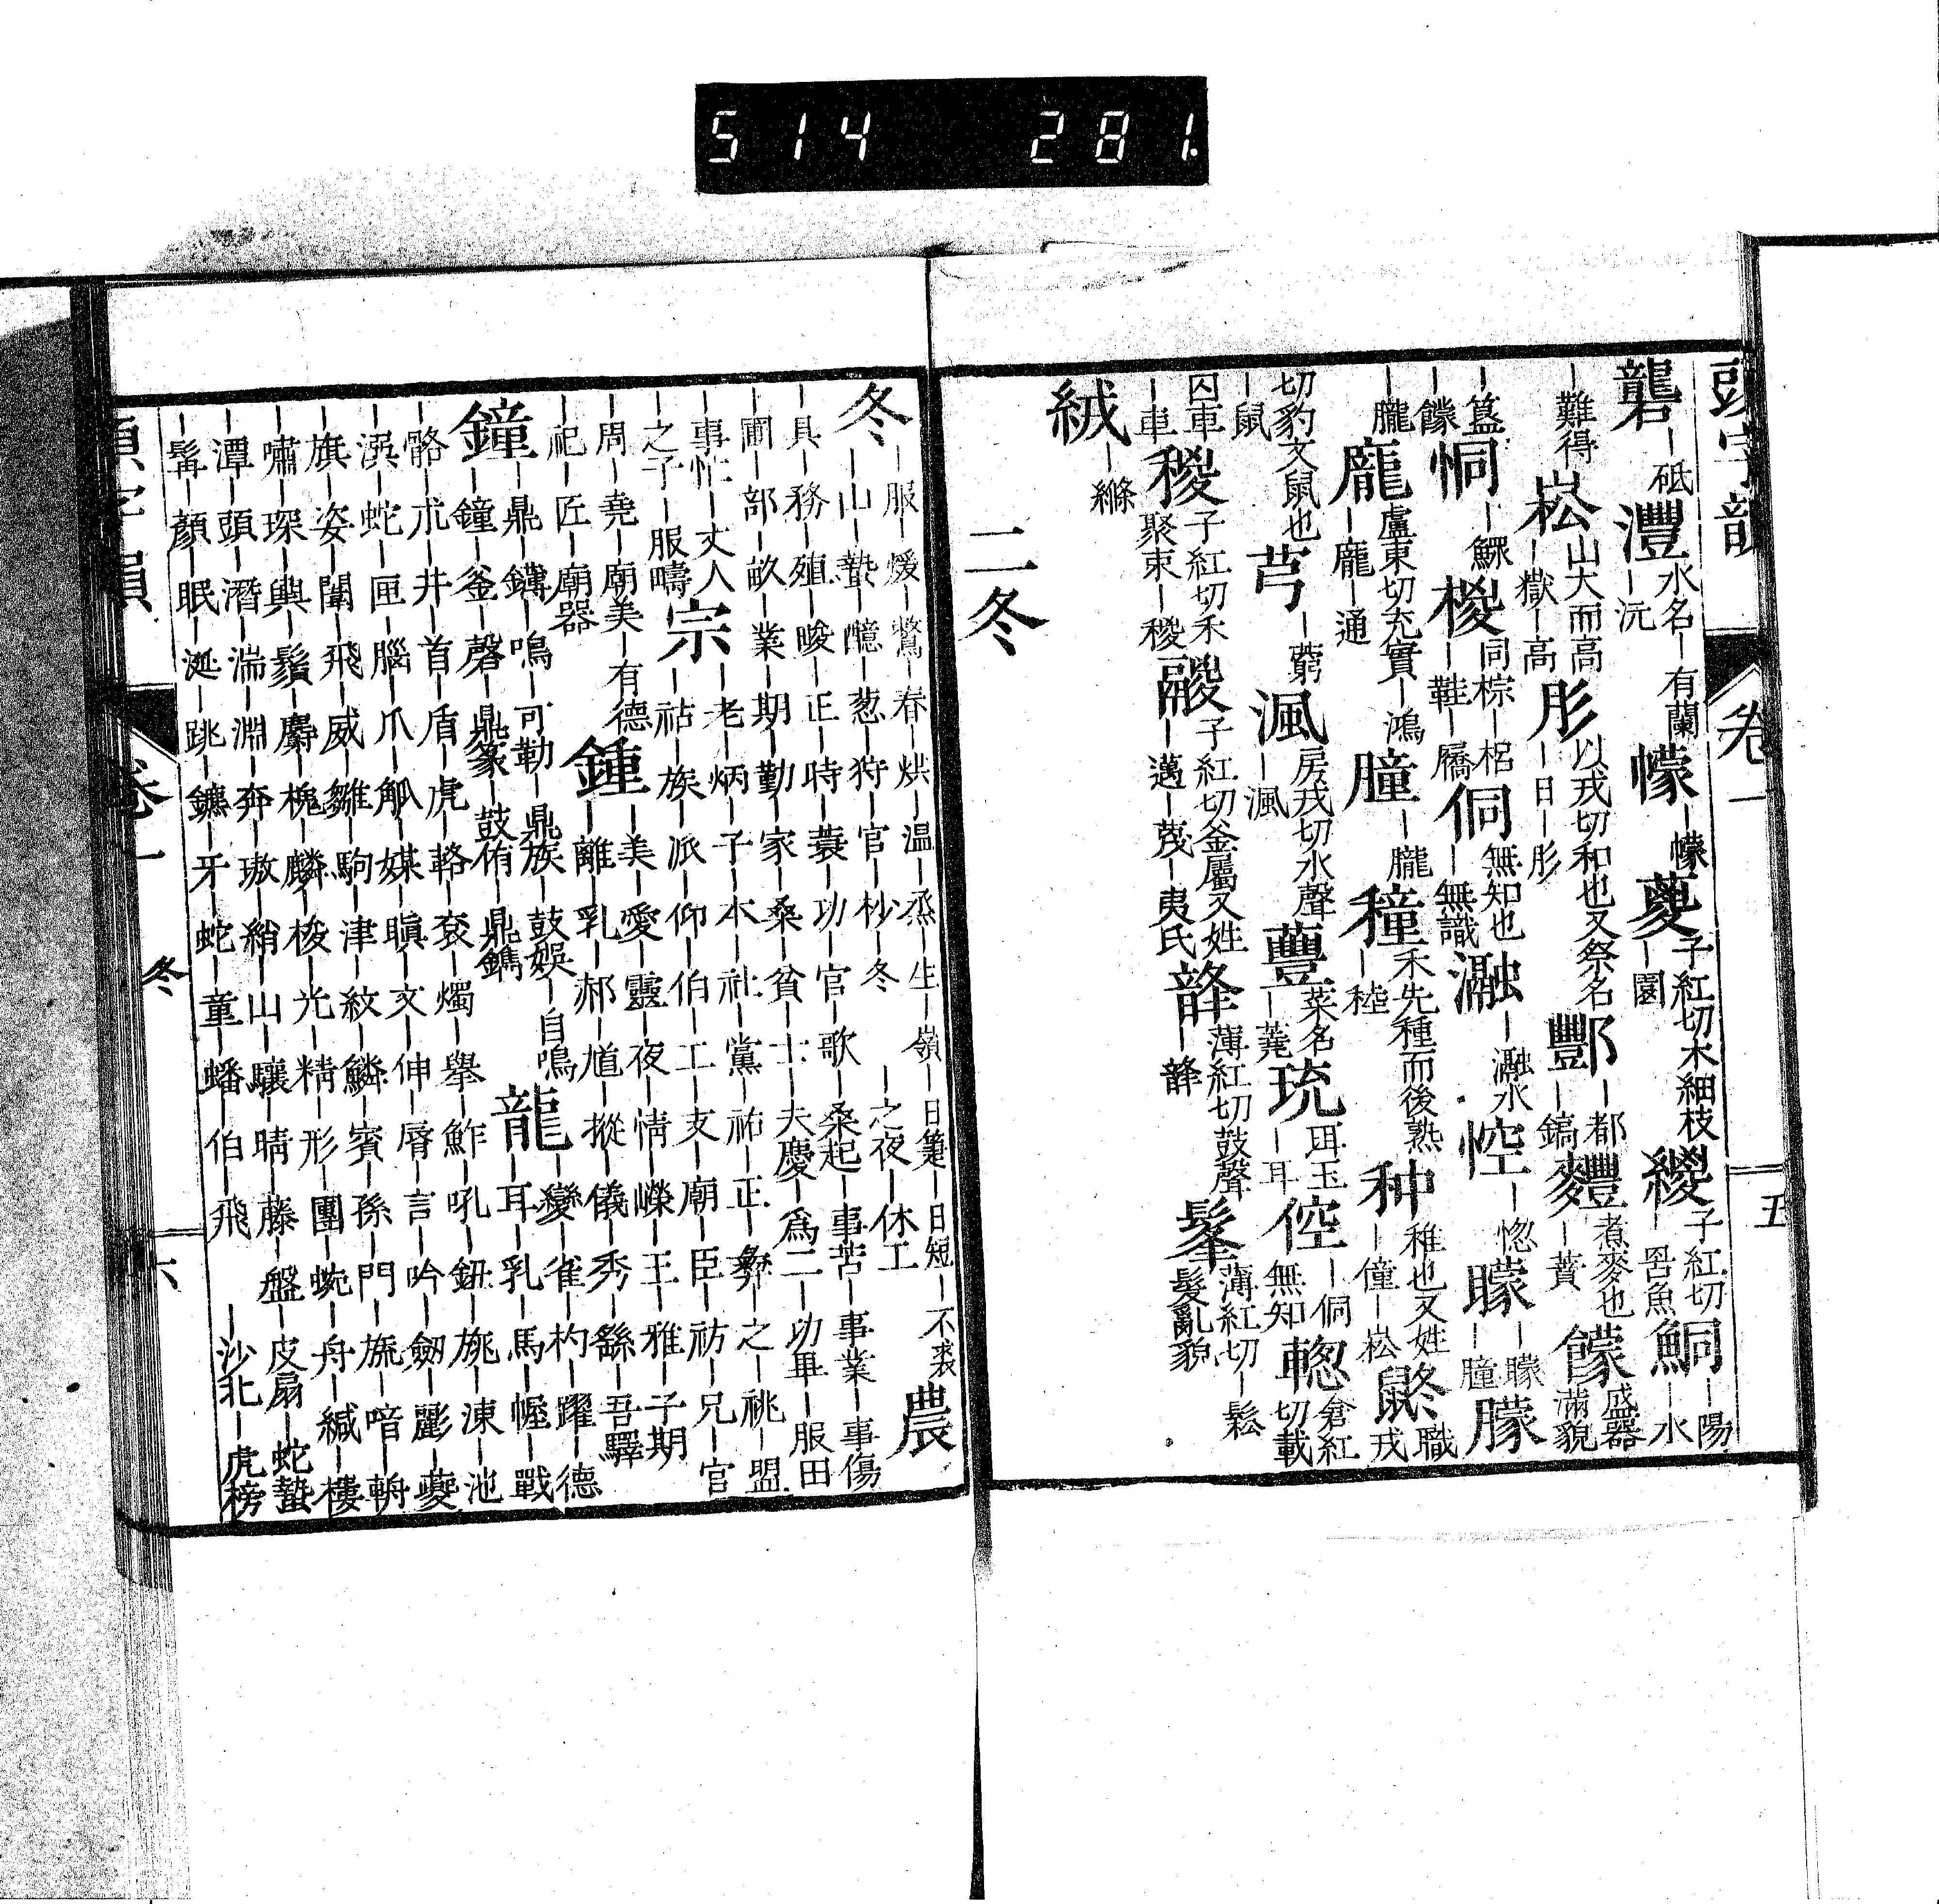 514 281.
頭字韻 卷一 五
礱 ｜砥 灃 水名｜有蘭｜沅 幪 ｜幪 葼 子紅切木細枝｜園 緵 子紅切｜罟魚 鮦 ｜陽｜水
｜難得 崧 山大而高｜嶽｜高 肜 以戎切和也又祭名｜日｜肜 酆 ｜都｜鎬 麷 煮麥也｜蕡 饛 盛器滿貌
簋｜餯 恫 ｜鰥 椶 同棕｜梠｜鞋｜屩 侗 無知也｜無識 瀜 ｜瀜水 悾 ｜惚 矇 ｜矇｜瞳 朦
｜朧 龐 盧東切充實｜鴻｜龐｜通 朣 ｜朧 穜 禾先種而後熟｜稑 种 稚也又姓｜僮｜崧 鼨 職戎
切豹文鼠也｜鼠 芎 ｜藭 渢 房戎切水聲｜渢 蘴 菜名｜蕘 珫 珥玉｜耳 倥 ｜侗無知 輚 倉紅切載
囚車｜車 稯 子紅切禾聚束｜稯 鬷 子紅切釜屬又姓｜邁｜蔑｜夷氏 韸 薄紅切鼓聲｜韸 髼 薄紅切｜鬆髮亂貌
絨 ｜絛
二冬
冬 ｜服｜煖｜鶯｜春｜烘｜温｜烝｜生｜嶺｜日箑｜日短｜不裘
｜山｜蟄｜醷｜葱｜狩｜官｜杪｜冬｜之夜｜休工 農
｜具｜務｜殖｜畯｜正｜時｜蓑｜功｜官｜歌｜桑起｜事苦｜事業｜事傷
｜圃｜部｜畝｜業｜期｜勤｜家｜桑｜貧｜士｜夫慶｜爲二｜功畢｜服田
｜事忙｜丈人｜老｜炳｜子｜本｜社｜黨｜祐｜正｜彝｜之｜祧｜盟
｜之子｜服疇 宗 ｜祜｜族｜派｜仰｜伯｜工｜支｜廟｜臣｜祊｜兄｜官
｜周｜堯｜廟美｜有德｜美｜愛｜靈｜夜｜情｜嶸｜王｜雅｜子期
｜祀｜匠｜廟器 鍾 ｜離｜乳｜郝｜馗｜摐｜儀｜秀｜繇｜吾驛
鐘 ｜鼎｜鏄｜鳴｜可勒｜鼎族｜鼓娛｜自鳴 ｜鐘｜釜｜磬｜鼎篆｜鼓侑｜鼎鐫 龍 ｜變｜雀｜杓｜躍｜德｜耳｜乳｜馬｜幄｜戰
｜骼｜朮｜井｜首｜盾｜虎｜輅｜袞｜燭｜舉｜鮓｜吼｜鈕｜旐｜涷｜池
｜漦｜蛇｜匣｜腦｜爪｜觚｜媒｜瞋｜文｜伸｜脣｜言｜吟｜劒｜彲｜夔
｜旗｜姿｜闈｜飛｜威｜雛｜駒｜津｜紋｜鱗｜賓｜孫｜門｜旒｜喑｜輈
｜嘯｜琛｜輿｜鬚｜麝｜槐｜麟｜梭｜光｜精｜形｜團｜蜿｜舟｜緘｜樓
｜潭｜頭｜潛｜湍｜淵｜奔｜璈｜綃｜山｜驤｜晴｜藤｜盤｜皮扇｜蛇蟄
｜髯｜顏｜眠｜涎｜跳｜鑣｜牙｜蛇｜童｜蟠｜伯｜飛｜沙北｜虎榜
頭字韻 卷一 冬 六